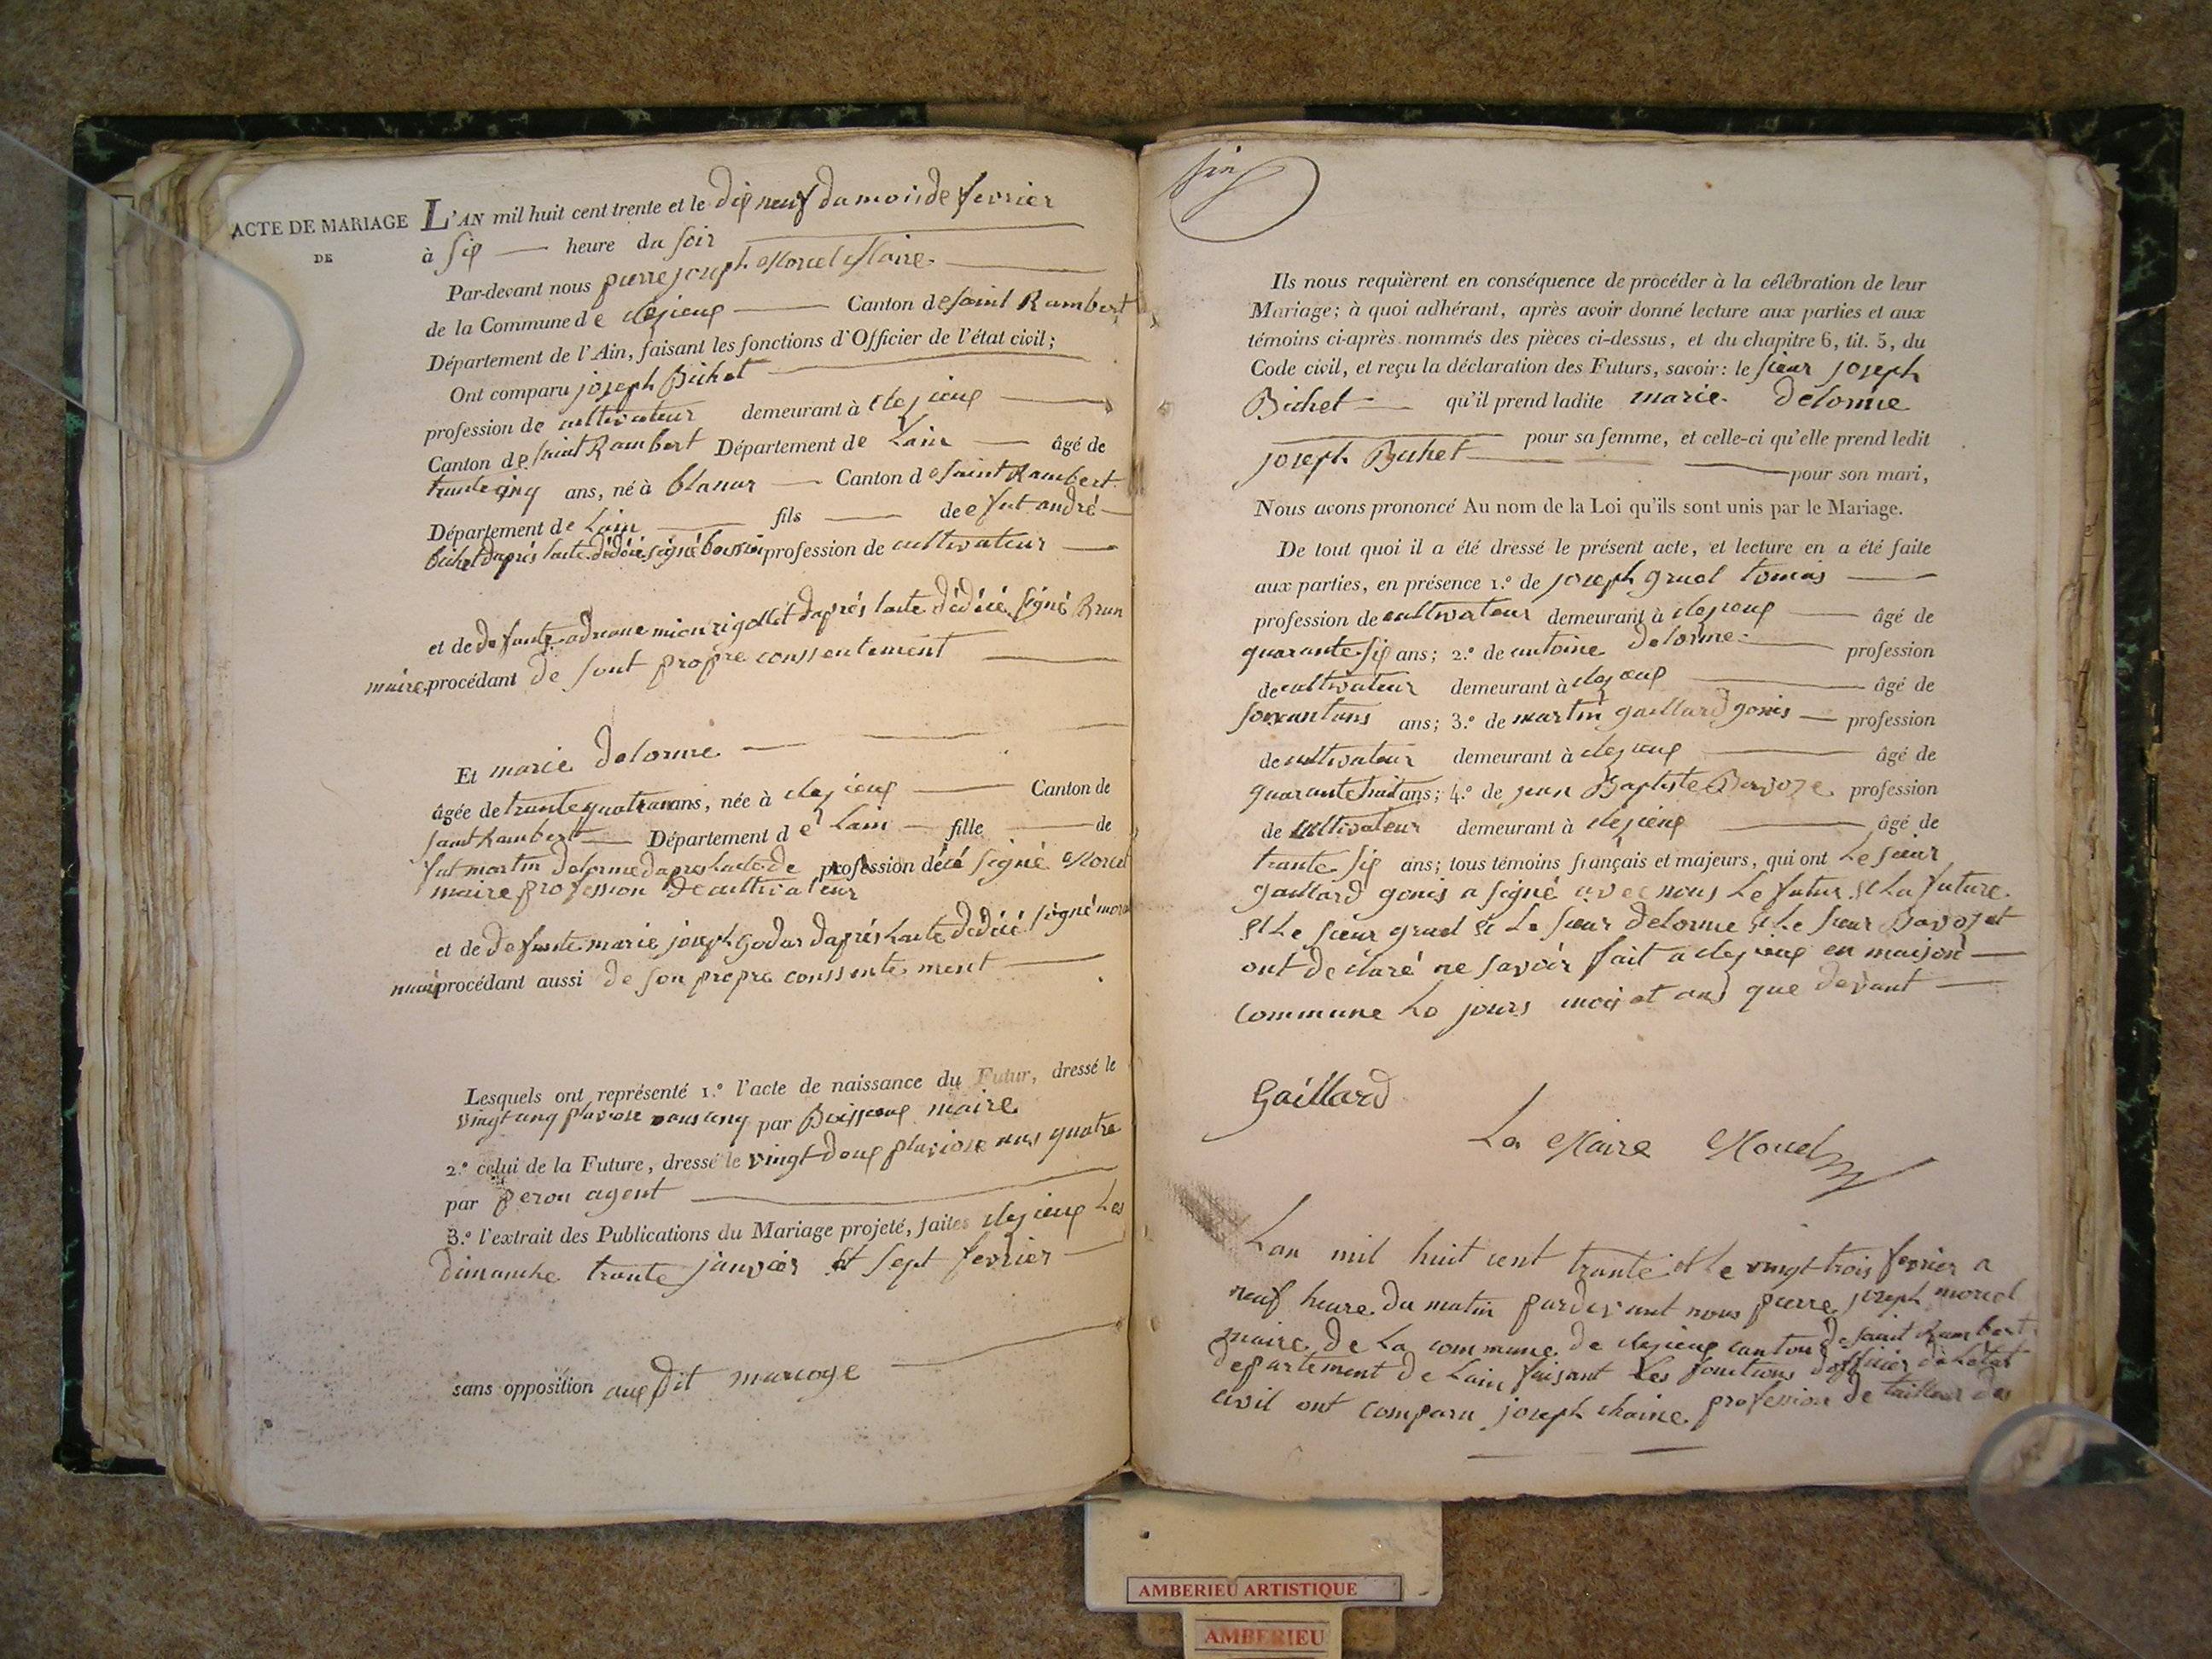 ACTE DE MARIAGE
DE
L'AN mil huit cent trente et le dix neuf du mois de fevrier
à six heure du soir
Par-devant nous pierre joseph Morel Maire
de la Commune de clezieux Canton de saint Rambert
Département de l'Ain, faisant les fonctions d'Officier de l'état civil;
Ont comparu joseph Bichet
profession de cultivateur demeurant à clezieux
Canton de saint Rambert Département de Lain âgé de
trante cinq ans, né à blanas Canton de saint Rambert
Département de Lain fils de fut andré
Bichet daprés lacte dédécé signé profession de cultivateur
et de defante mien rigollet daprés lacte dédécé signé Brun
maire procédant de sont propre conssentement
Et marie delorme
âgée de trante quatre ans, née à clezieux Canton de
saint Rambert Département de Lain fille de
fut martin delorme daprès lacte de profession décé signé Morel
maire profession de cultivateur
et de defante marie joseph godar daprés lacte dédécé signé morel
maire procédant aussi de son propre conssentement
Lesquels ont représenté 1.º l'acte de naissance du Futur, dressé le
vingt cinq pluviose ans cinq par maire
2.º celui de la Future, dressé le vingt deux pluviose ans quatre
par peron agent
3.º l'extrait des Publications du Mariage projeté, faites clezieux Les
dimanche trante janvier et sept fevrier
sans opposition aux dit mariage
Ils nous requièrent en conséquence de procéder à la célébration de leur
Mariage; à quoi adhérant, après avoir donné lecture aux parties et aux
témoins ci-après nommés des pièces ci-dessus, et du chapitre 6, tit. 5, du
Code civil, et reçu la déclaration des Futurs, savoir: le sieur joseph
Bichet qu'il prend ladite marie delorme
pour sa femme, et celle-ci qu'elle prend ledit
joseph Bichet pour son mari,
Nous avons prononcé Au nom de la Loi qu'ils sont unis par le Mariage.
De tout quoi il a été dressé le présent acte, et lecture en a été faite
aux parties, en présence 1.º de joseph gruel tomas
profession de cultivateur demeurant à clezieux âgé de
quarante six ans; 2.º de antoine delorme profession
de cultivateur demeurant à clezieux âgé de
soixantans ans; 3.º de martin gaillard gonis profession
de cultivateur demeurant à clezieux âgé de
quarante huit ans; 4.º de jean Baptiste profession
de cultivateur demeurant à clezieux âgé de
trante six ans; tous témoins français et majeurs, qui ont Le sieur
gaillard gonis a signé avec nous Le futur et La future
et Le sieur gruel et Le sieur delorme et Le sieur
ont declaré ne savoir fait a clezieux en maison
commune Le jours mois et ans que devant
Gaillard
Le Maire Morel
Lan mil huit cent trante et le vingt trois fevrier a
neuf heure du matin pardevant nous pierre joseph morel
maire de La commune de clezieux canton de saint Rambert
departement de Lain faisant Les fonctions dofficier de Létat
civil ont comparu joseph chaine profession de tailleur des
AMBERIEU ARTISTIQUE
AMBERIEU